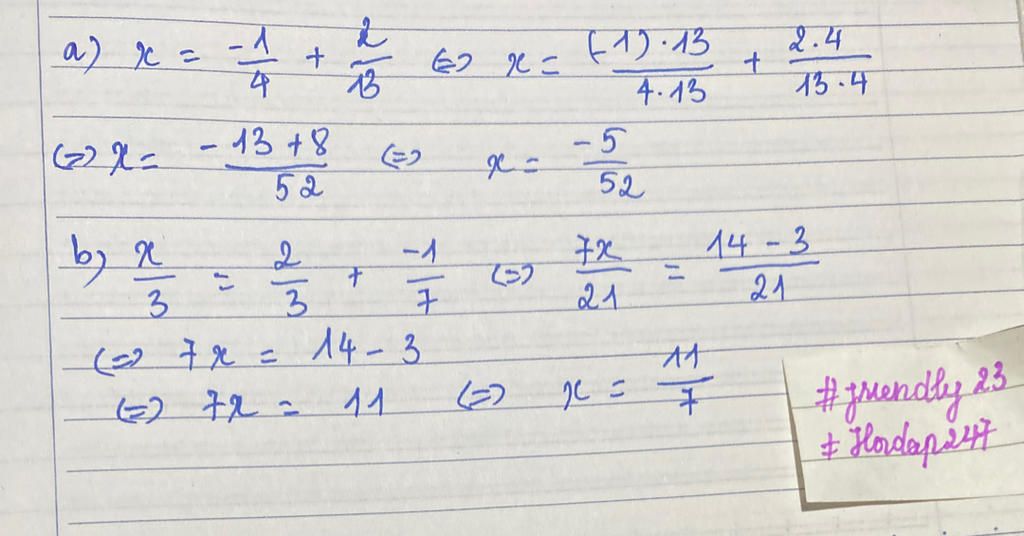 a) x = -1/4 + 2/13 (=) x = (-1).13/4.13 + 2.4/13.4
(=) x = -13+8/52 (=) x = -5/52
b) x/3 = 2/3 + -1/7 (=) 7x/21 = 14-3/21
(=) 7x = 14-3
(=) 7x = 11 (=) x = 11/7
#friendly23
# Hoidap247